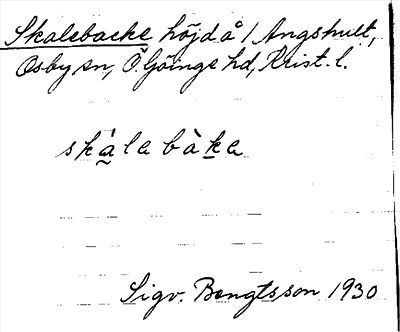 Skalebacke höjd å 1 Angshult,
Osby sn, Ö. Göinge hd, Krist. l.
skàlabàka
Sigv. Bengtsson 1930